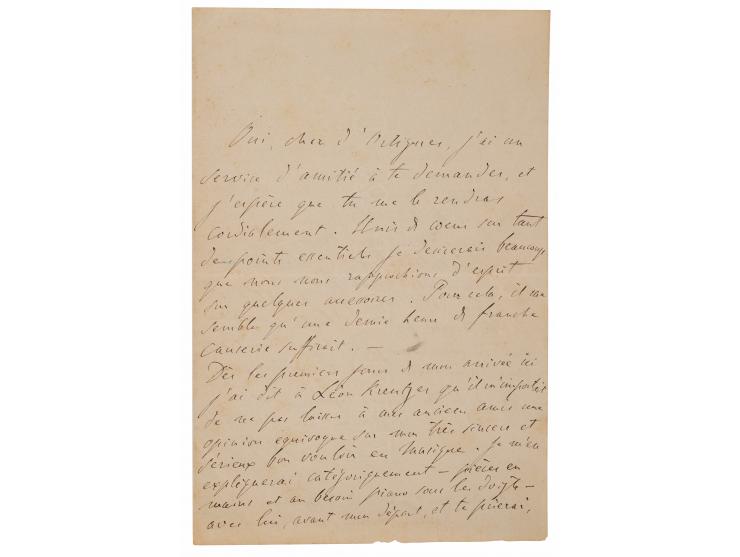 Oui, cher d'Ortigues, j'ai un
service d'amitié à te demander, et
j'espère que tu me le rendras
cordialement. Unis de coeur sur tant
de points essentiels je desirerais beaucoup
que nous nous rapprochions d'esprit
sur quelques accessoires. Pour cela, il me
semble qu'une demie heure de franche
causerie suffirait. —
Dès les premiers jours de mon arrivée ici
j'ai dit à Léon Kreutzer qu'il m'importait
de ne pas laisser à mes anciens amis une
opinion équivoque sur mon très sincère et
sérieux bon vouloir en musique. Je m'en
expliquerai catégoriquement — pièces en
mains et au besoin piano sous les doigts —
avec lui, avant mon départ, et te prierai,